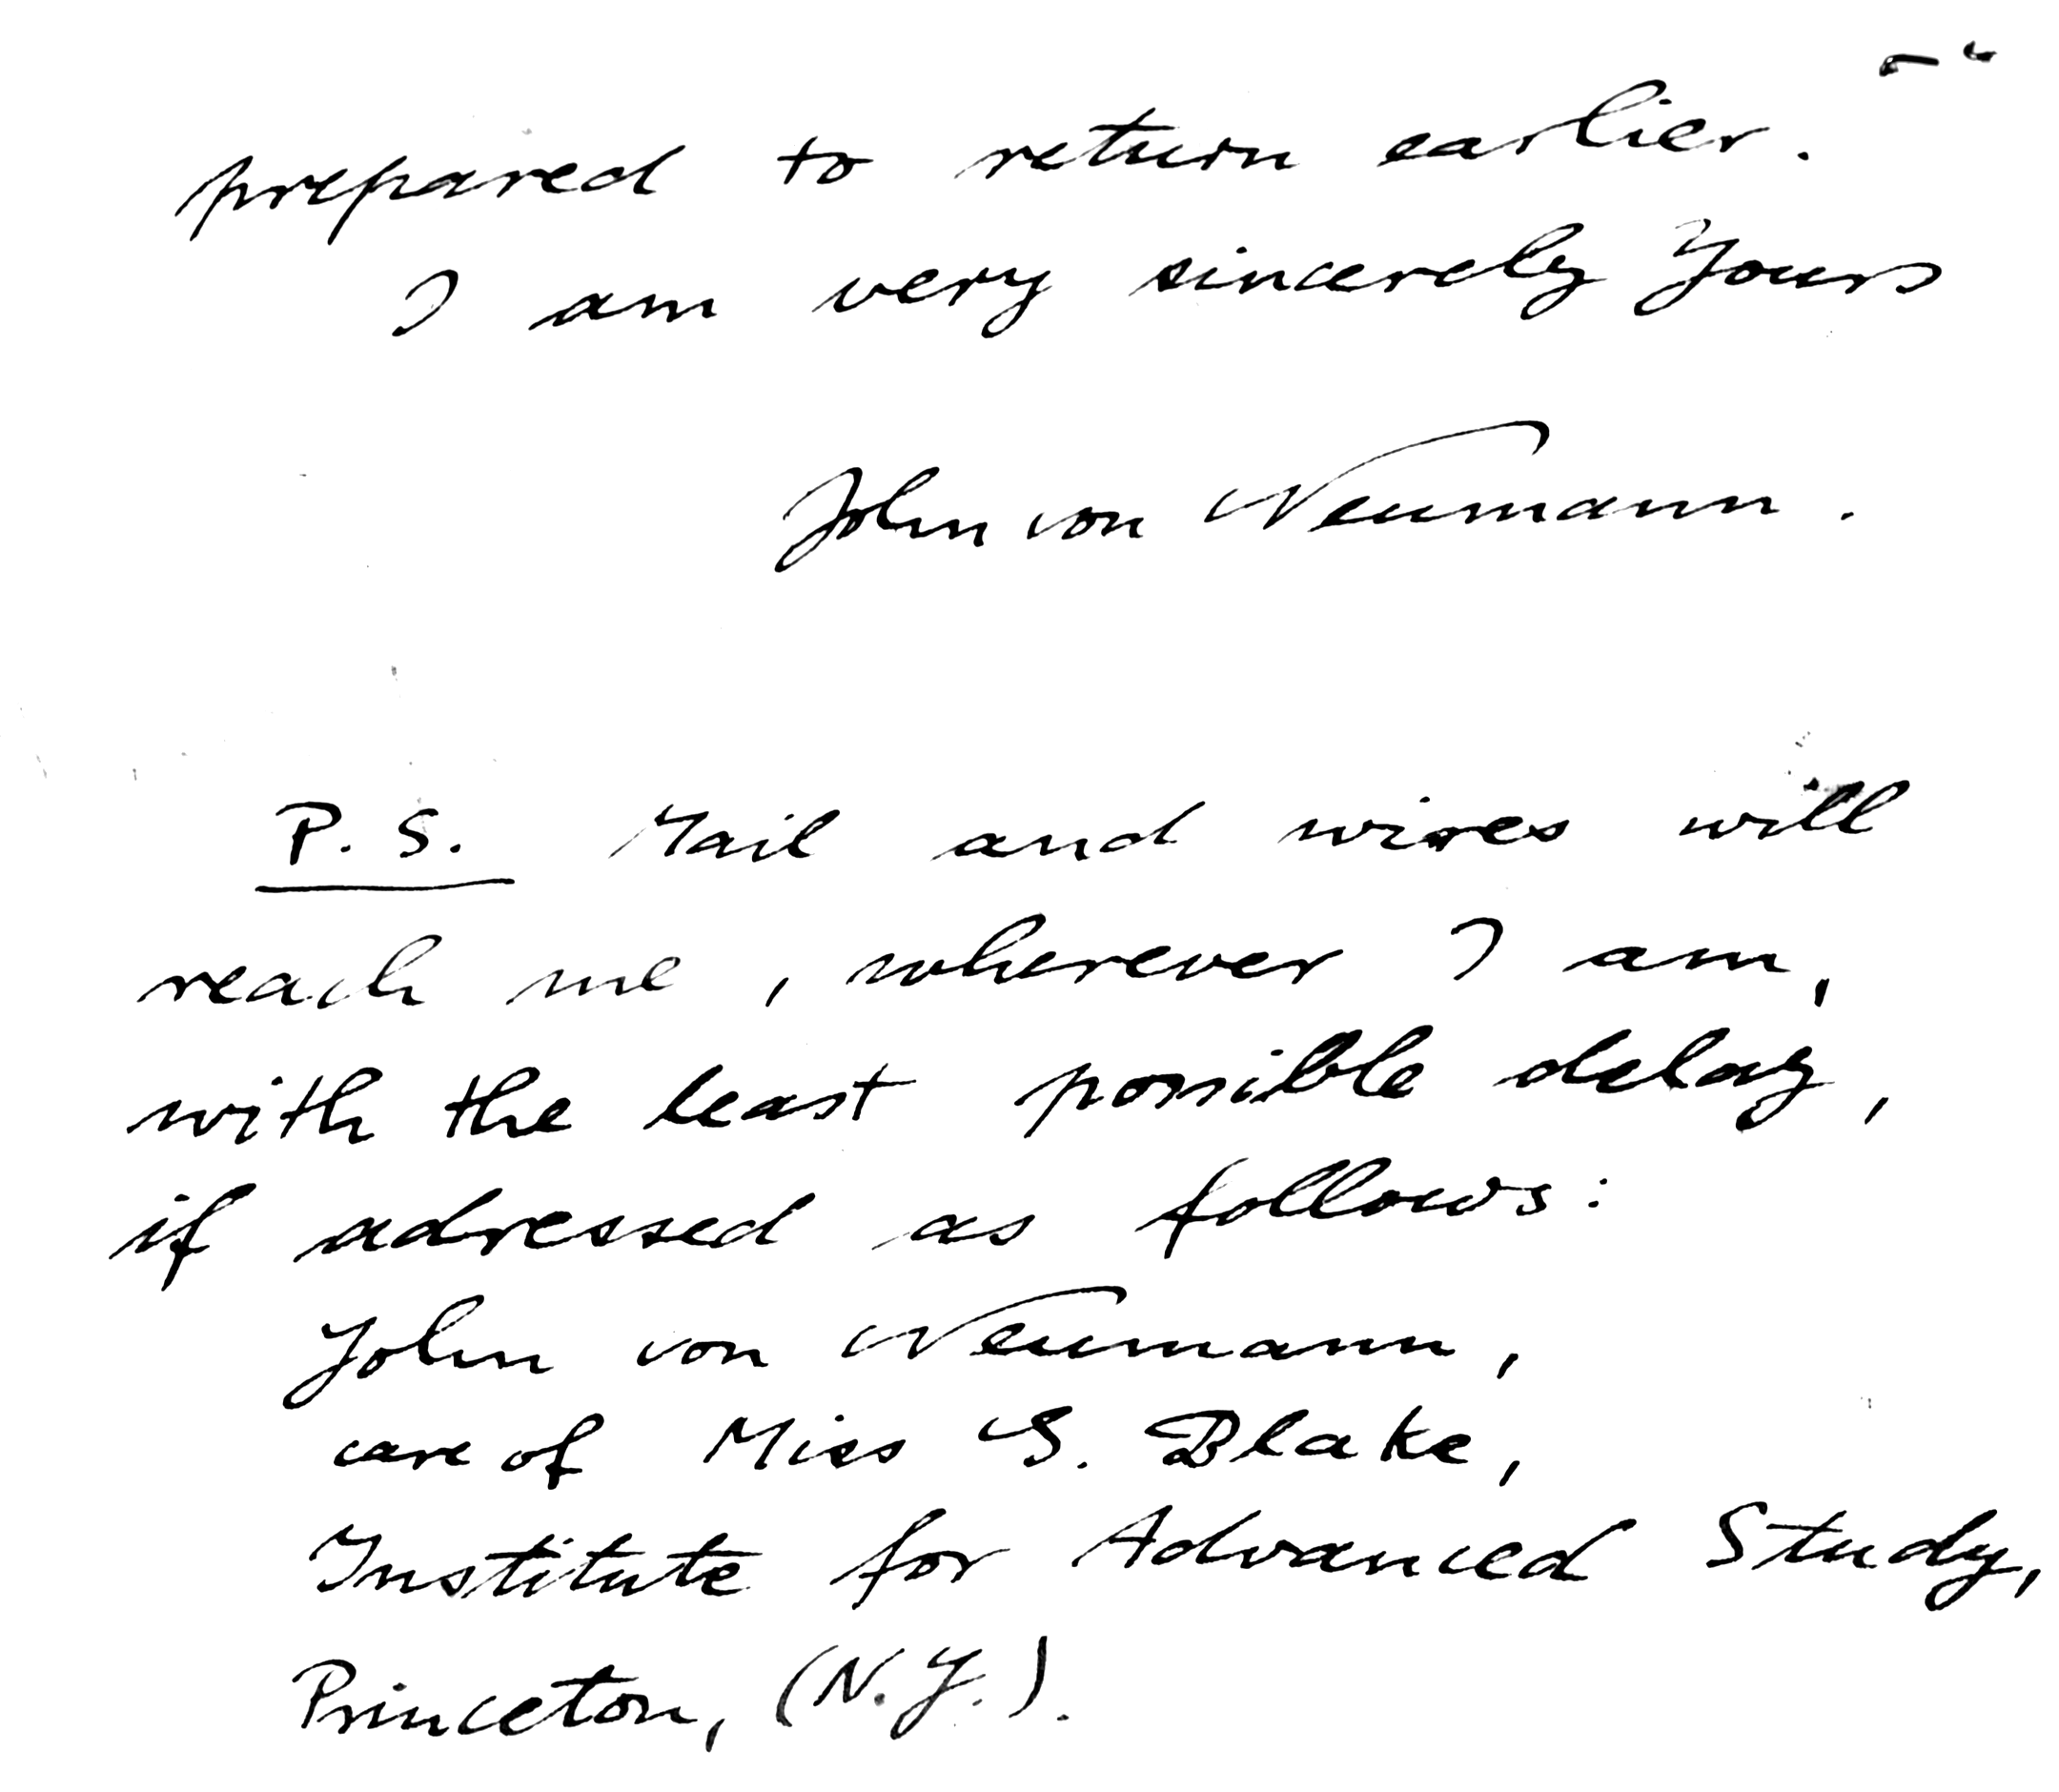 prepared to return earlier.
I am very sincerely Yours
John von Neumann.
P. S. Mail and wires will
reach me, wherever I am,
with the least possible delay,
if adressed as follows:
John von Neumann,
care of Miss G. Blake,
Institute for Advanced Study,
Princeton, (N. J.).